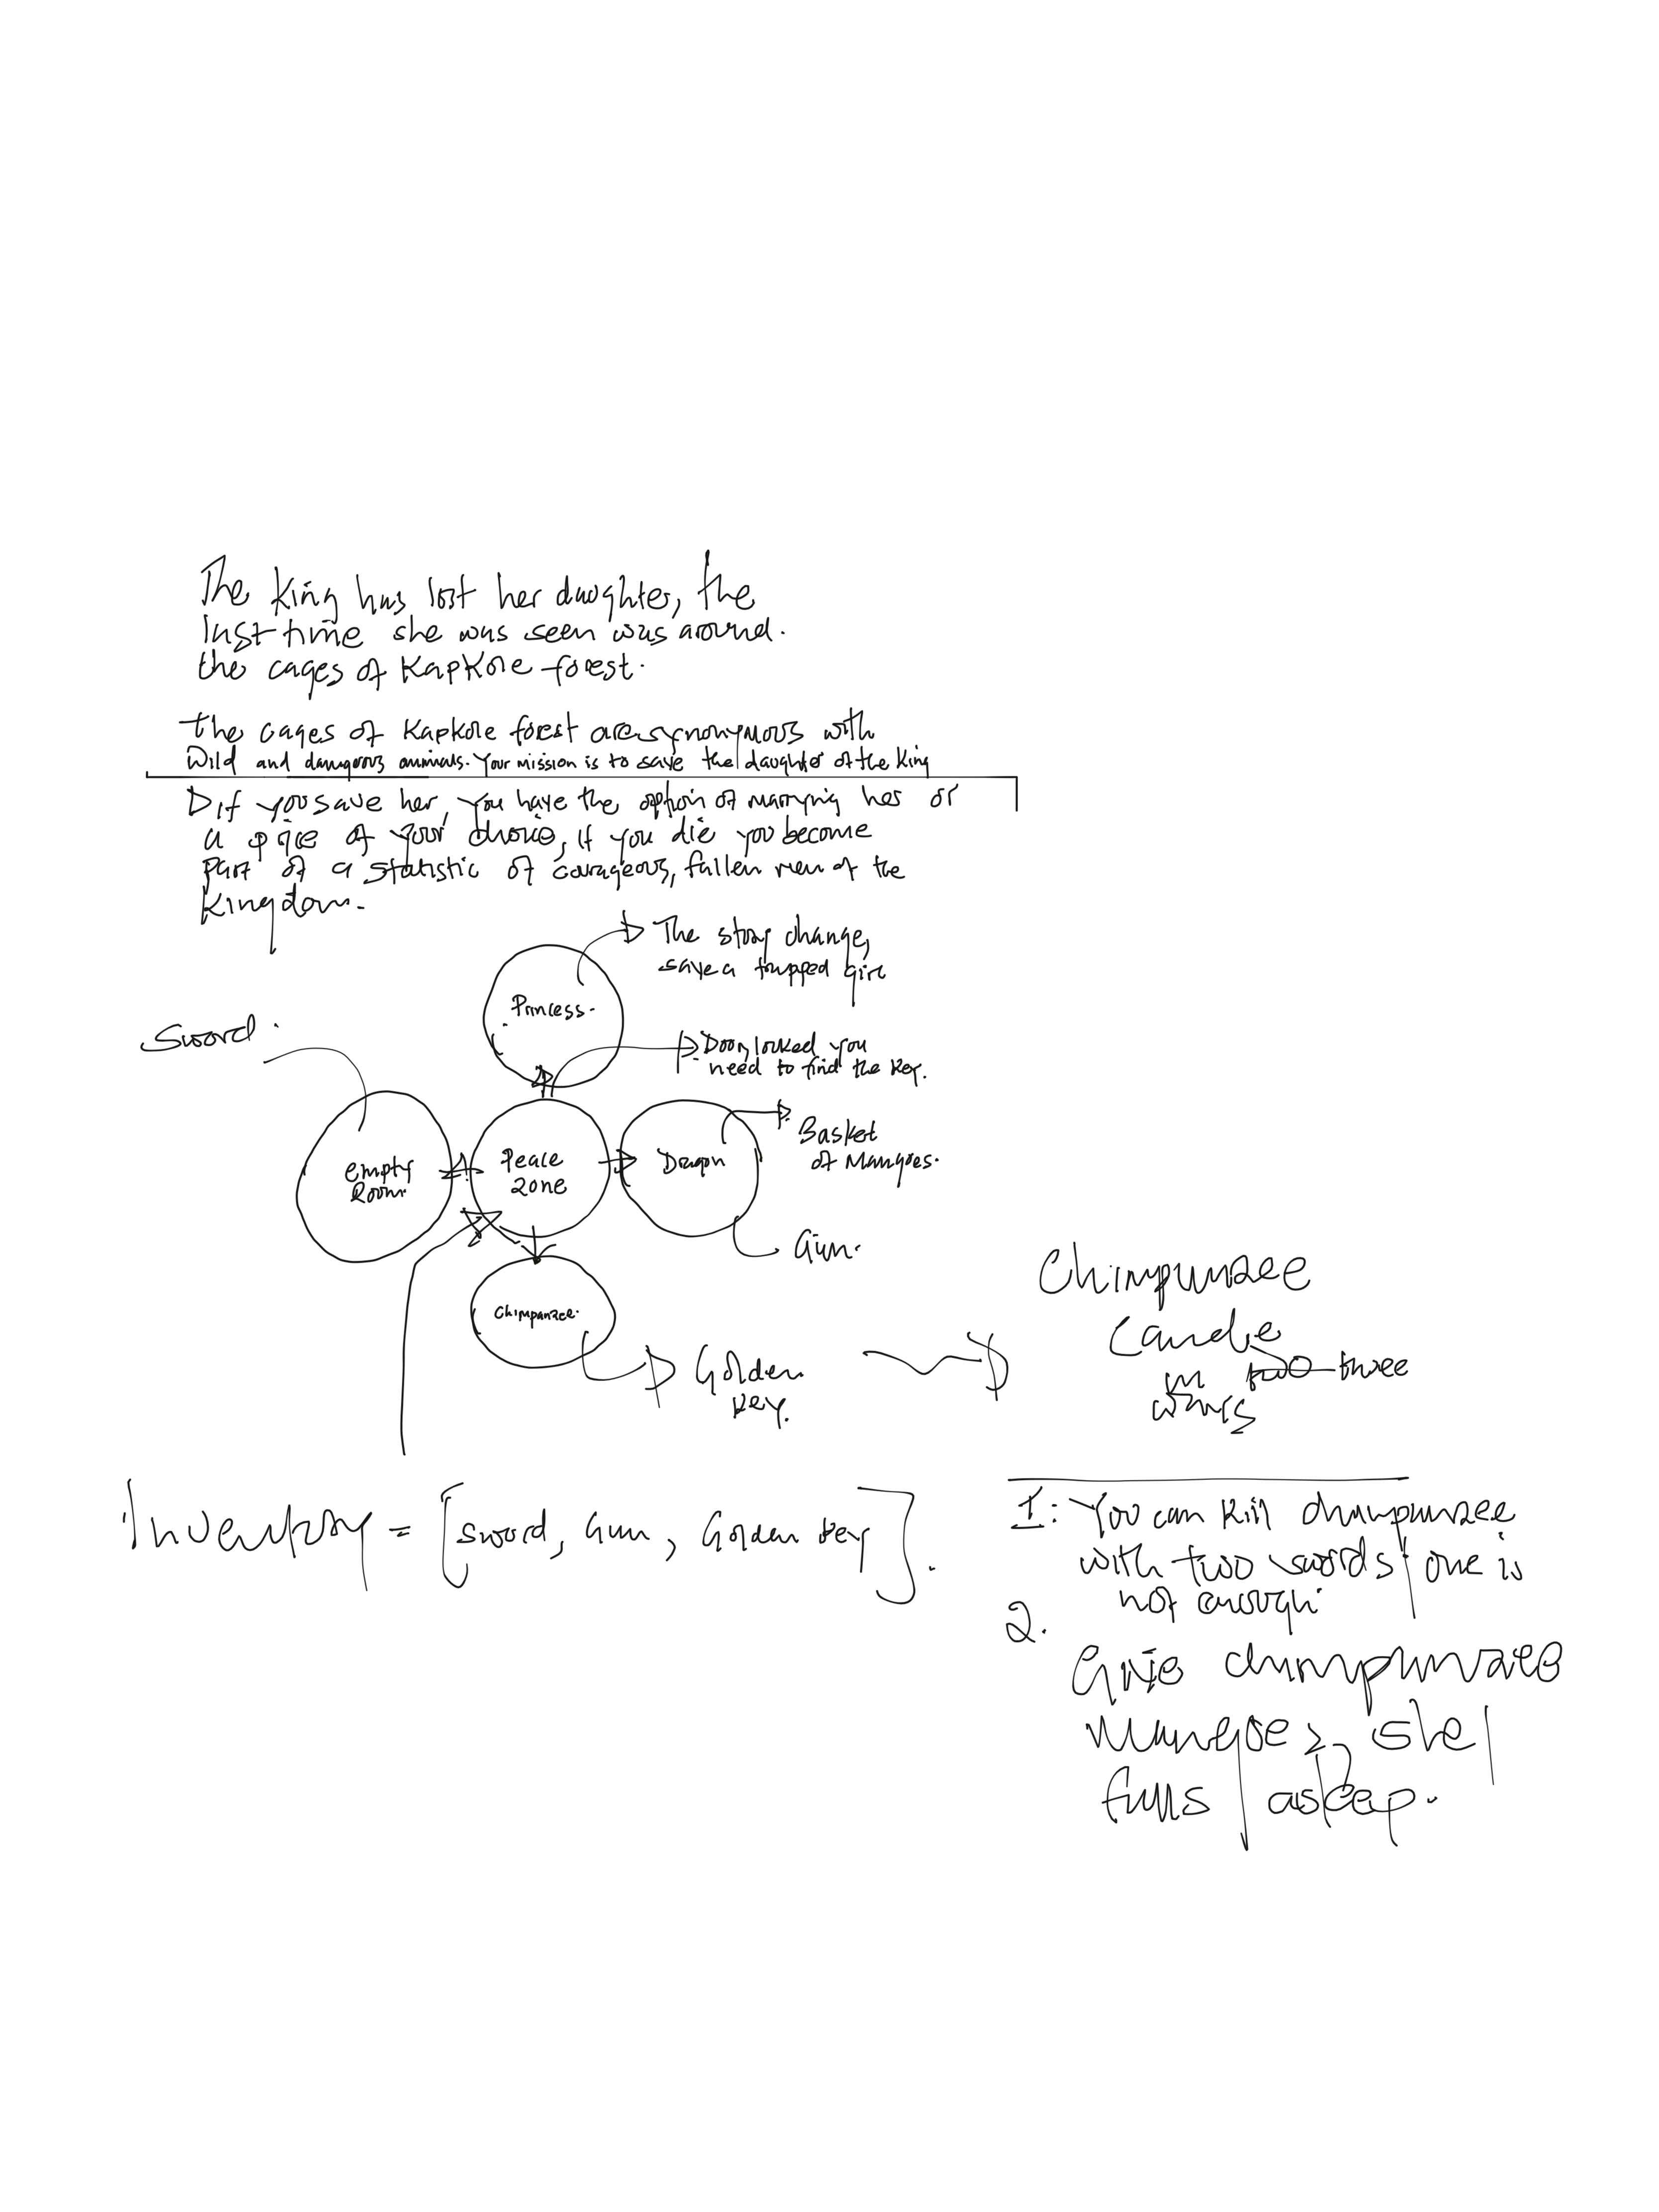 The King has lost her daughter, the
last time she was seen was around.
the cages of Kapkole forest.
the cages of Kapkole forest are synonymous with
Wild and dangerous animals. Your mission is to save the daughter of the King
If you save her, you have the option of marrying her or
a price of your choice, if you die you become
part of a statistic of courageous, fallen men of the
Kingdom.
The story change,
save a trapped girl
Princess.
Sword.
Door locked you
need to find the key.
Basket
of Mangoes.
Empty
Room.
Peace
zone
Dragon
Gun.
Chimpanzee.
Golden
key.
Chimpanzee
Can die
in two three
ways
Inventory = [sword, Gun, Golden key].
1: You can kill chimpanzee
with two swords, one is
not enough.
2.
Give chimpanzee
Mangoes, she
falls asleep.